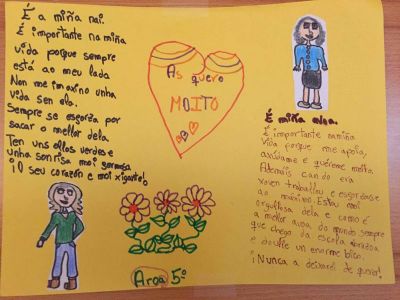 É a miña nai.
É importante na miña
vida porque sempre
está ao meu lado
Non me imaxino unha
vida sen ela.
Sempre se esforza por
sacar o mellor dela.
Ten uns ollos verdes e
unha sonrisa moi
¡O seu corazón e moi xigante!
As quero
MOITO
É miña aboa.
É importante na miña
Vida porque me apoia,
axúdame e quéreme moito.
Ademais cando era
xoven traballou e esforzouse
ao máximo. Estou moi
orgullosa dela e como é
a mellor avoa do mundo sempre
que chego da escola abrázoa
e doulle un enorme bico.
¡Nunca a deixarei de querer!
Aroa 5º